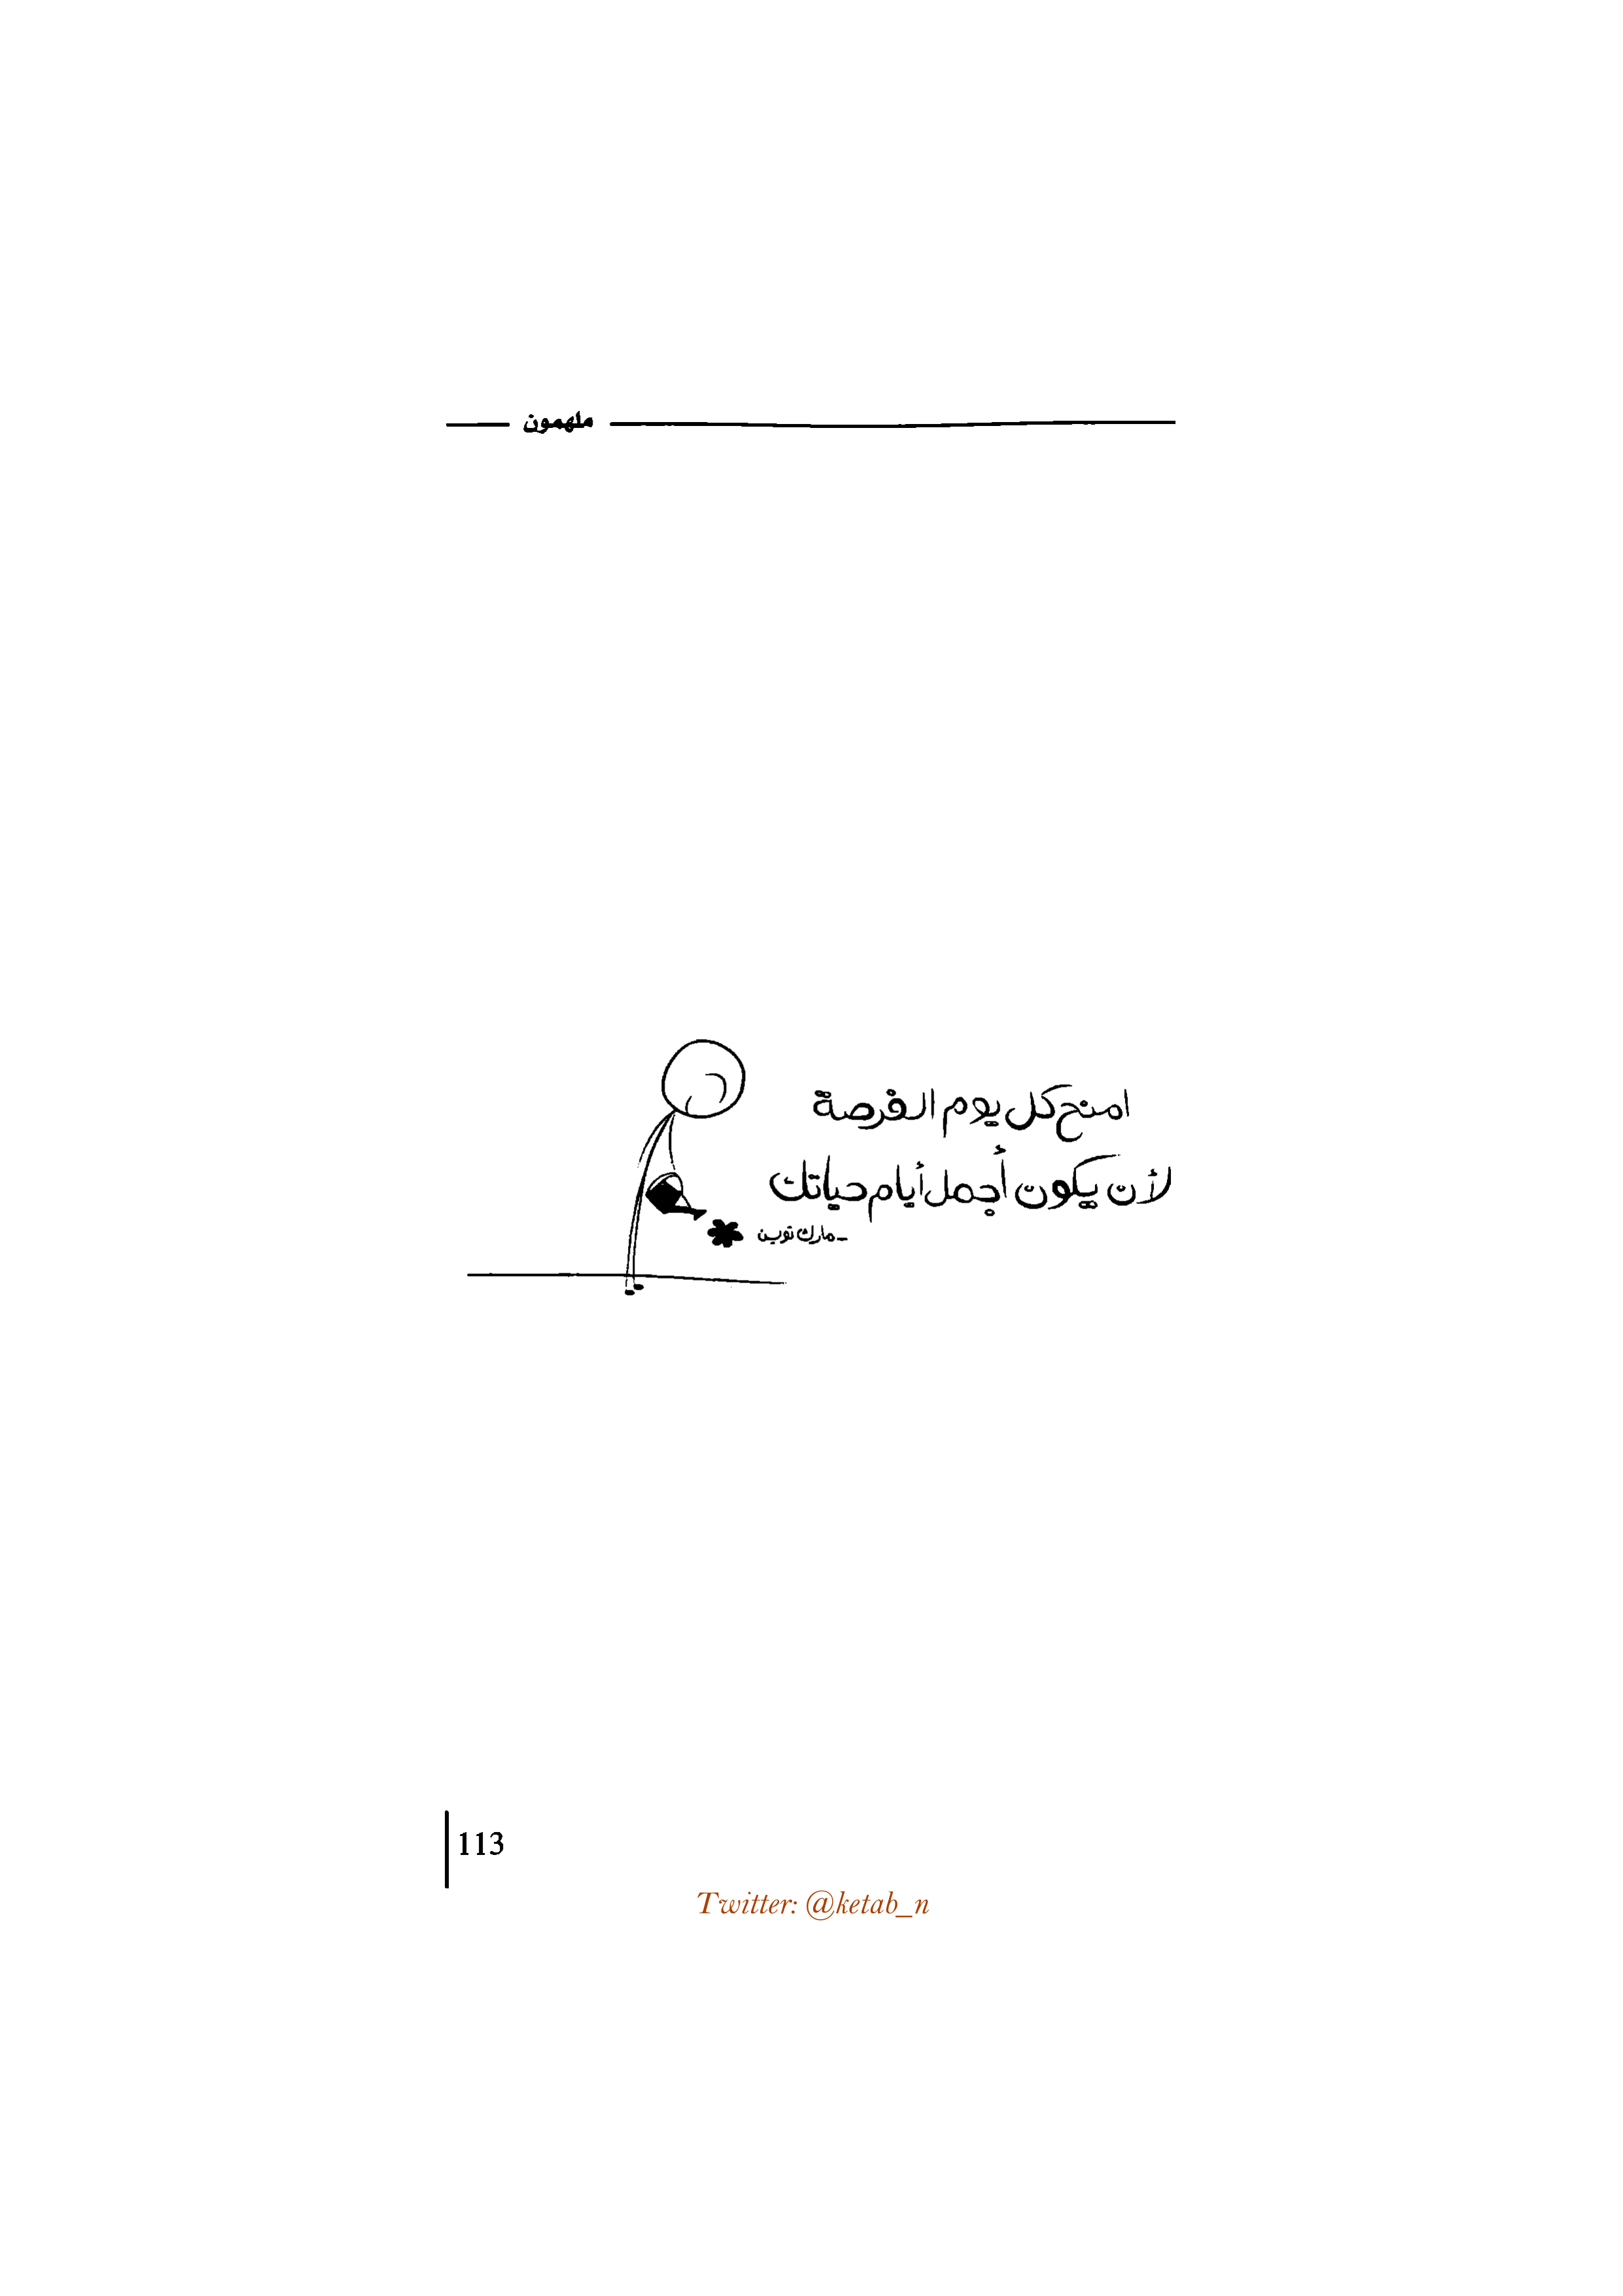 ملهمون
امنح كل يوم الفرصة
لأن يكون أجمل أيام حياتك
- مارك توين
113
Twitter: @ketab_n